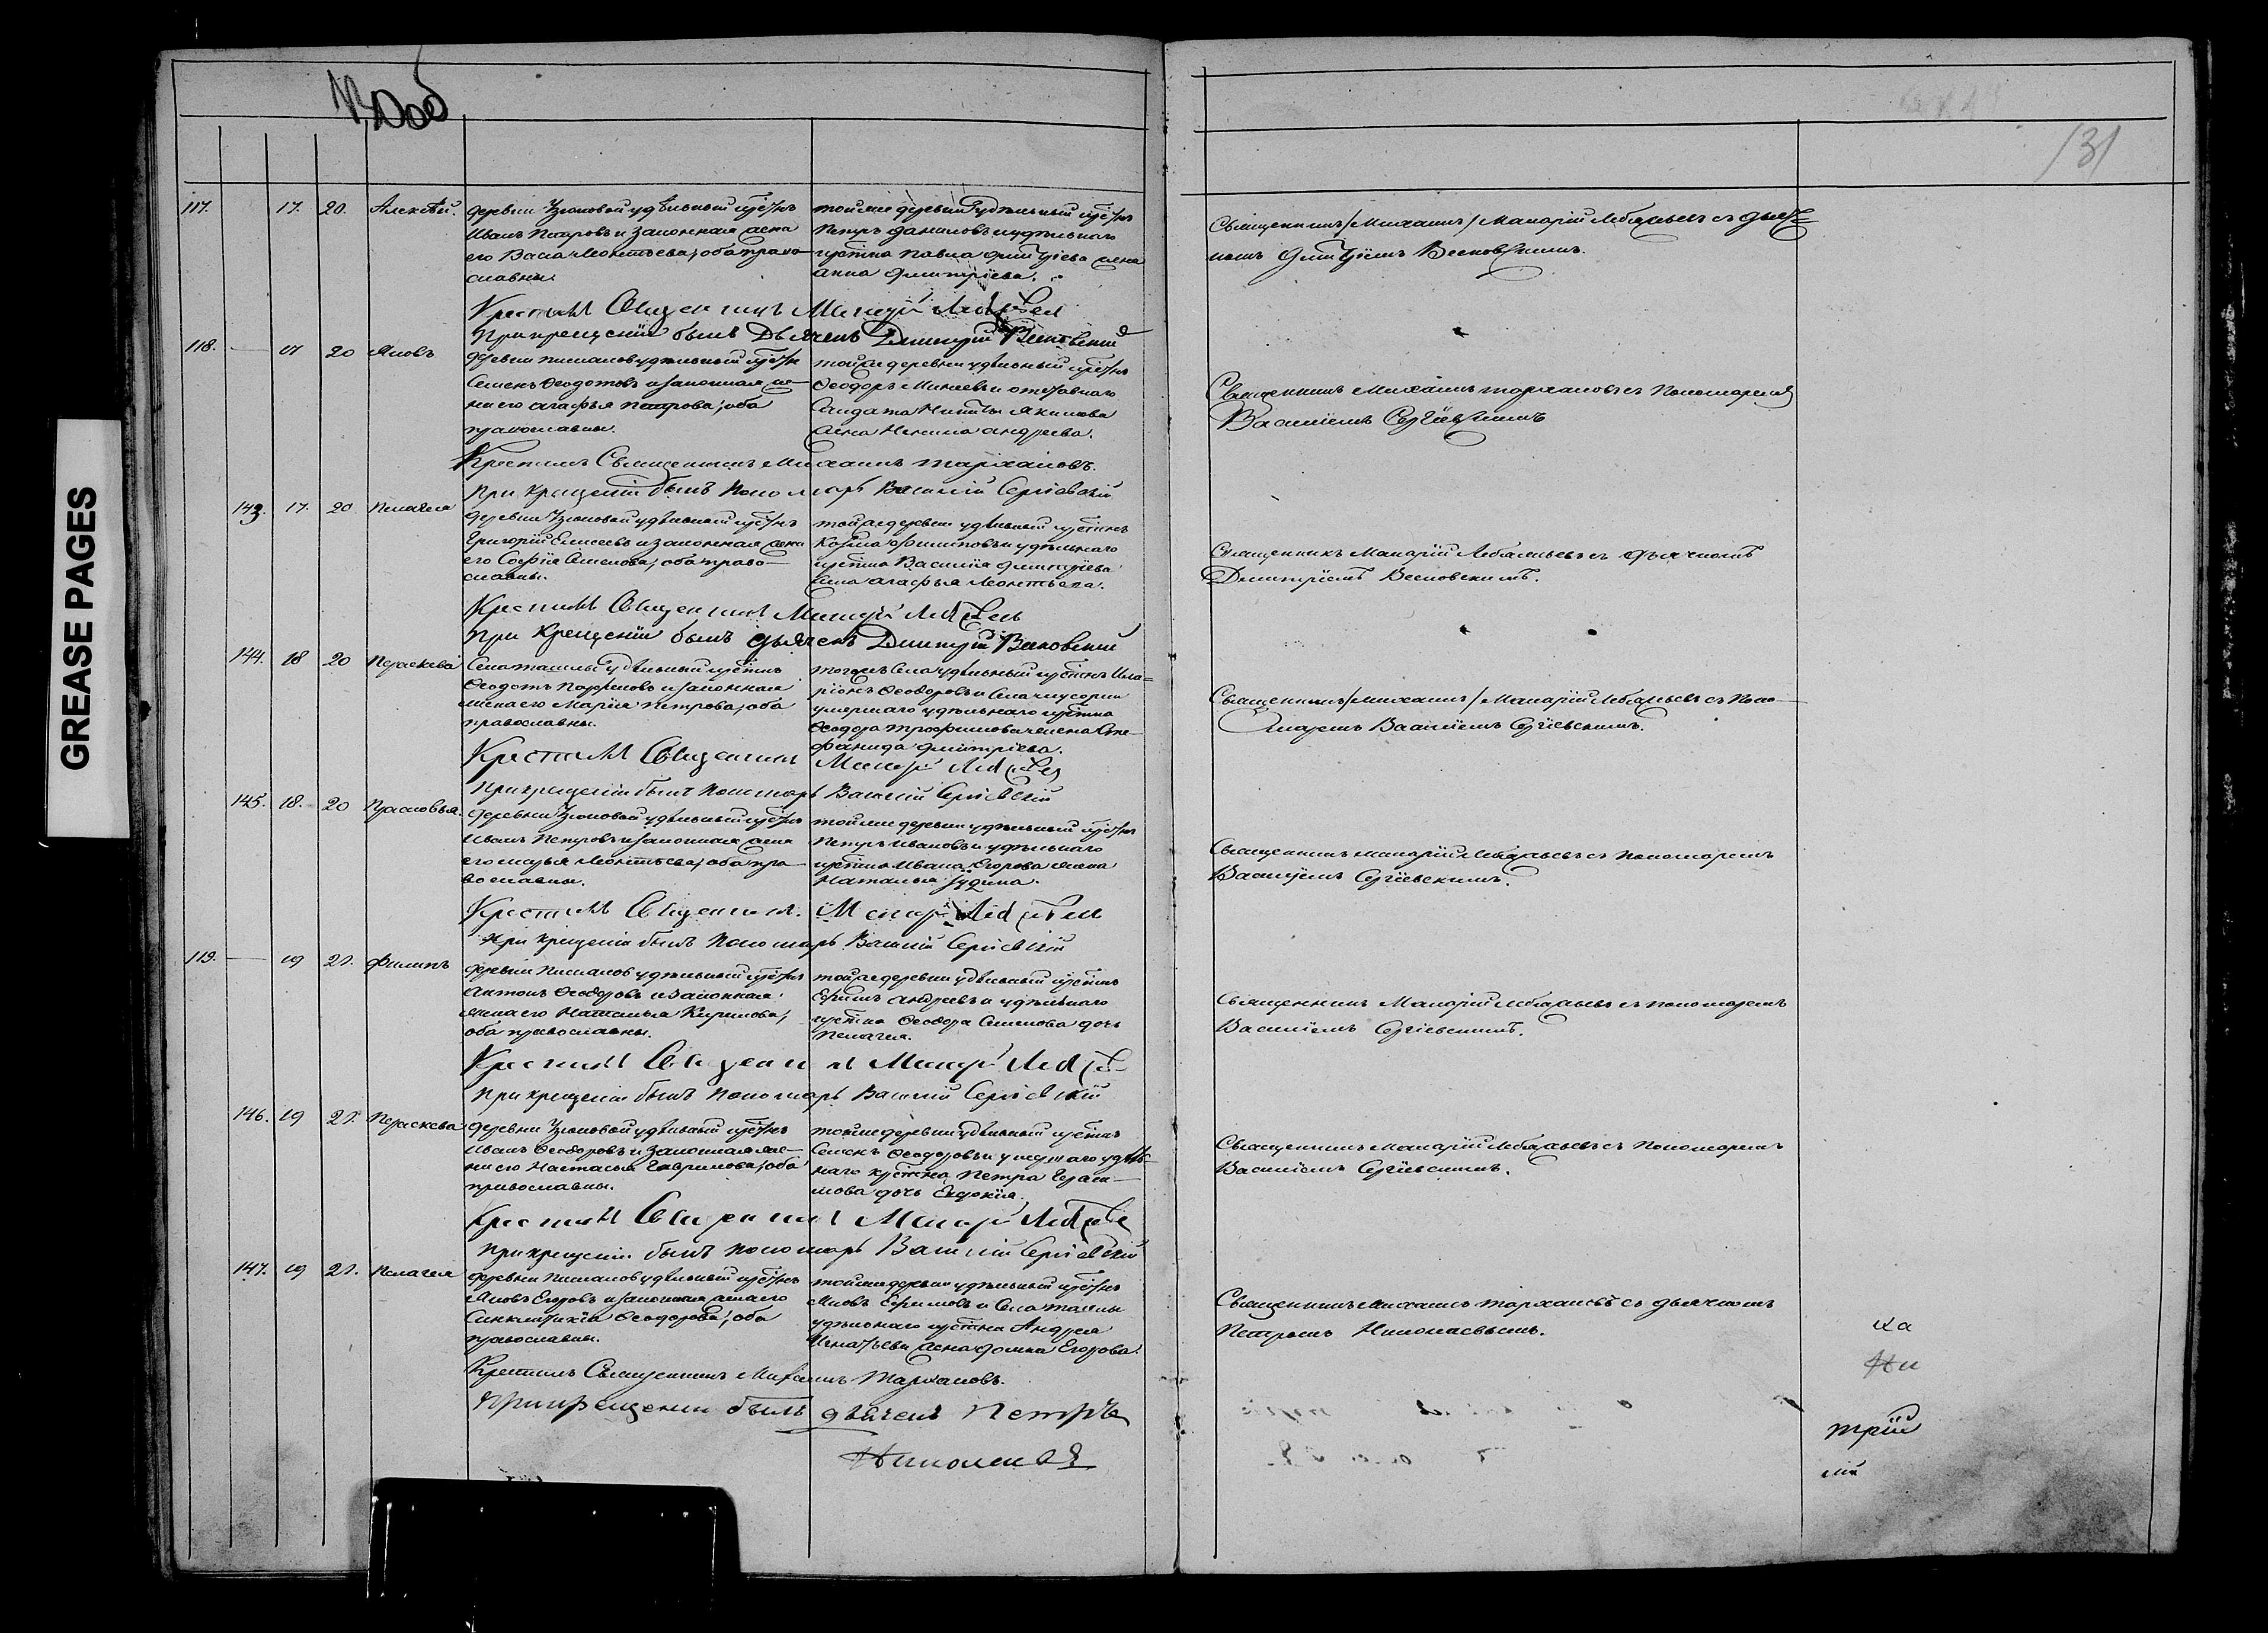 GREASE PAGES
131
117. 17. 20. Алексѣй.
деревни Узюковой удѣльный крестьнъ
Иванъ Петровъ и законная жена
его Васса Леонтьева, оба право-
славны.
тойже деревни удѣльный крестьнъ
Петръ Даниловъ и удѣльнаго
крестьна Павла Дмитріева жена
Анна Дмитріева.
Священникъ /Михаилъ/ Макарій Лебедевъ съ дьяч-
комъ Дмитріемъ
Крестилъ Священникъ Макарій
При крещеніи былъ Дьячекъ Дмитрій
118. — 17 20 Яковъ
деревни удѣльный крестьнъ
Семенъ Ѳеодотовъ и законная же-
на его Агафья Петрова, оба
православны.
тойже деревни удѣльный крестьнъ
Ѳеодоръ Минеевъ и отставнаго
Солдата Никиты Якимова
жена Ненила Андреева.
Священникъ Михаилъ Тархановъ съ Пономаремъ
Василіемъ Сергіевскимъ
Крестилъ Священникъ Михаилъ Тархановъ.
При крещеніи былъ Пономарь Василій Сергіевскій
143. 17. 20 Пелагея
деревни Узюковой удѣльный крестьнъ
Григорій Елисеевъ и законная жена
его Софія Семенова, оба право-
славны.
тойже деревни удѣльный крестьнъ
Козма Филиповъ и удѣльнаго
крестьна Василія Дмитріева
жена Агафья Леонтьева.
Священникъ Макарій Лебедевъ съ Дьячкомъ
Дмитріемъ
Крестилъ Священникъ Макарій
При крещеніи былъ дьячекъ Дмитрій
144. 18 20 Параскева
Села Ташлы удѣльный крестьнъ
Ѳеодотъ и законная
жена его Марія Петрова, оба
православны.
тогожъ Села удѣльный крестьнъ Ила-
ріонъ Ѳеодоровъ и Села Мусорки
умершаго удѣльнаго крестьна
Ѳеодора Трофимова жена Сте-
фанида Дмитріева.
Священникъ /Михаилъ/ Макарій Лебедевъ съ Поно-
маремъ Василіемъ Сергіевскимъ.
Крестилъ Священникъ Макарій
При крещеніи былъ Пономарь Василій Сергіевскій
145. 18. 20 Прасковья.
деревни Узюковой удѣльный крестьнъ
Иванъ Петровъ и законная жена
его Марья Леонтьева, оба пра-
вославны.
тойже деревни удѣльный крестьнъ
Петръ Ивановъ и удѣльнаго
крестьна Ивана Егорова жена
Наталья Іудина.
Священникъ Макарій Лебедевъ съ Пономаремъ
Василіемъ Сергіевскимъ.
Крестилъ Священникъ Макарій
При крещеніи былъ Пономарь Василій Сергіевскій
119. — 19 21. Филипъ
деревни удѣльный крестьнъ
Антонъ Ѳеодоровъ и законная
жена его Наталья Кирилова,
оба православны.
тойже деревни удѣльный крестьнъ
Ефимъ Андреевъ и удѣльнаго
крестьна Ѳеодора Семенова дочь
Пелагея.
Священникъ Макарій Лебедевъ съ пономаремъ
Василіемъ Сергіевскимъ.
Крестилъ Священникъ Макарій
При крещеніи былъ Пономарь Василій Сергіевскій
146. 19 21. Параскева
деревни Узюковой удѣльный крестьнъ
Иванъ Ѳеодоровъ и законная же-
на его Настасья Гаврилова, оба
православны.
тойже деревни удѣльный крестьнъ
Семенъ Ѳеодоровъ и умершаго удѣль-
наго крестьна Петра Гераси-
мова дочь Евдокія.
Священникъ Макарій Лебедевъ съ Пономаремъ
Василіемъ Сергіевскимъ.
Крестилъ Священникъ Макарій
При крещеніи былъ пономарь Василій Сергіевскій
147. 19 21. Пелагея
деревни удѣльный крестьнъ
Яковъ Егоровъ и законная жена его
Синклитикія Ѳеодорова, оба
православны.
тойже деревни удѣльный крестьнъ
Яковъ Ефимовъ и Села Ташлы
удѣльнаго крестьна Андрея
Игнатьева жена Домна Егорова.
Священникъ Михаилъ Тархановъ съ дьячкомъ
Петромъ Николаевымъ.
Крестилъ Священникъ Михаилъ Тархановъ.
При крещеніи былъ дьячекъ Петръ
Николаевъ
ка
Ни
трій
лій